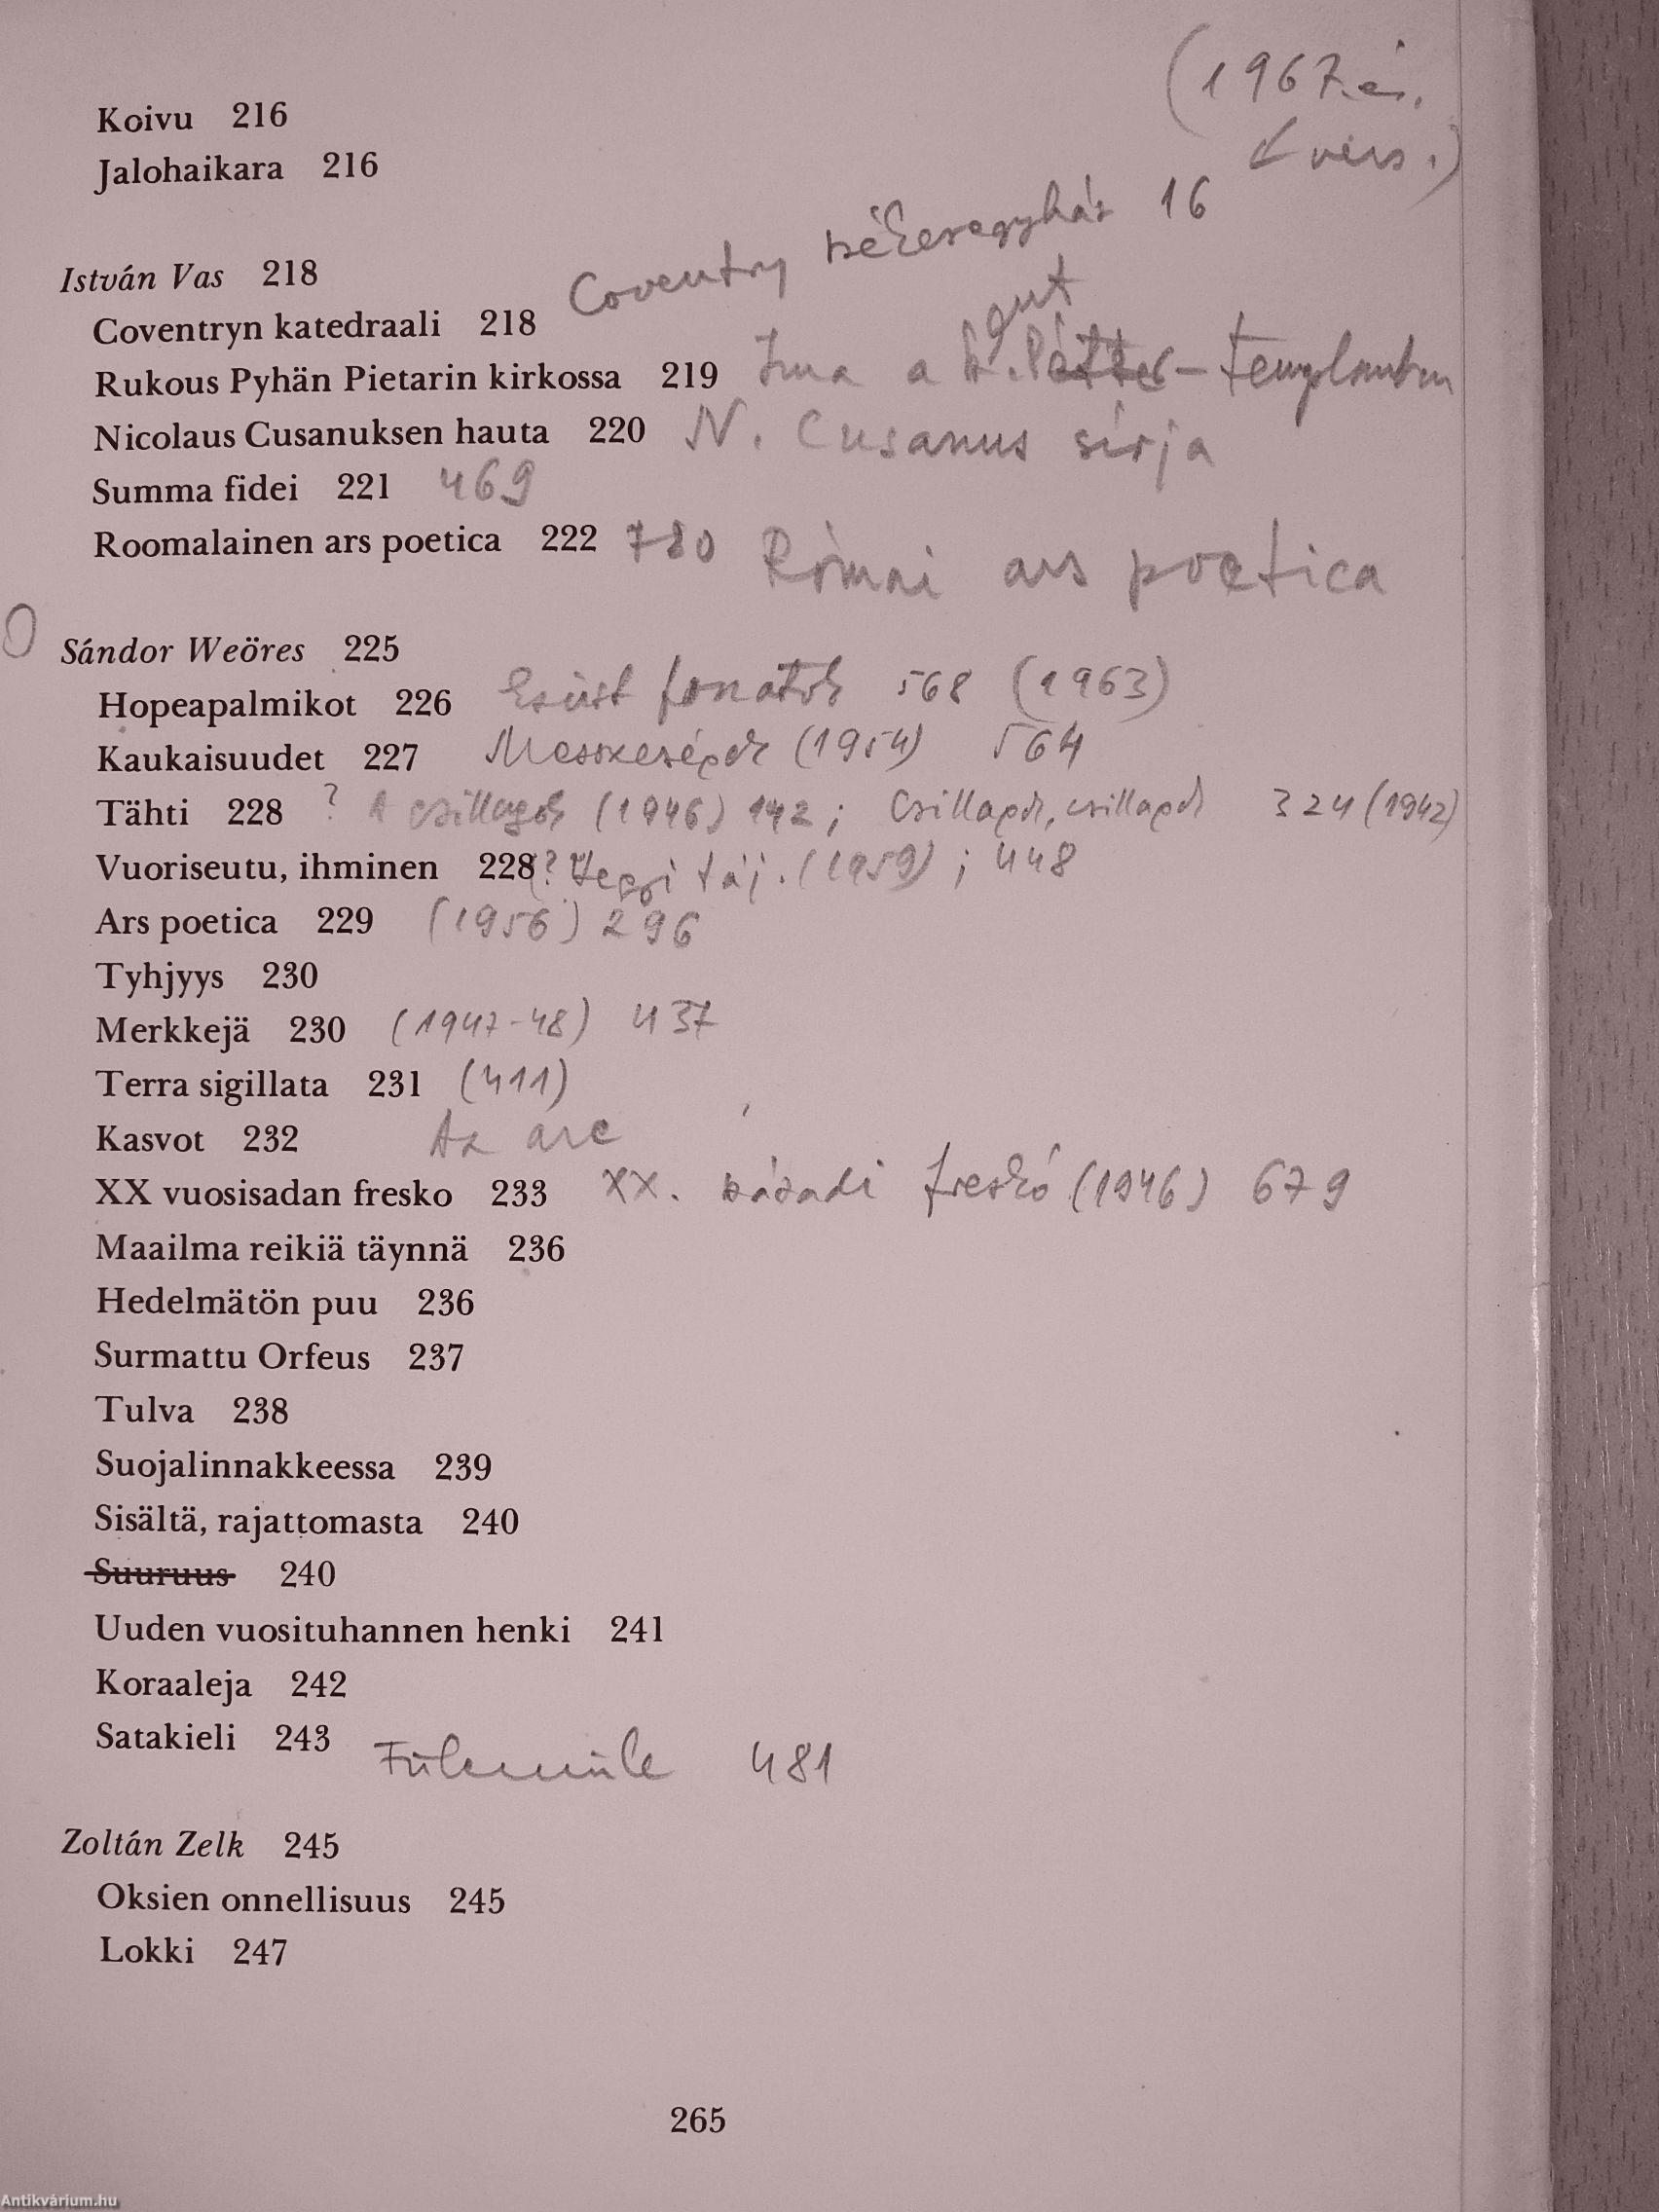 (1967.
vers.)
Koivu 216
Jalohaikara 216
István Vas 218
Coventryn katedraali 218 Coventry székesegyház 16
Rukous Pyhän Pietarin kirkossa 219 Ima a templomban
Nicolaus Cusanuksen hauta 220 N. Cusanus sírja
Summa fidei 221 469
Roomalainen ars poetica 222 780 Római ars poetica
Sándor Weöres 225
Hopeapalmikot 226 Ezüst fonatok 568 (1963)
Kaukaisuudet 227 Messzeségek (1954) 564
Tähti 228 ? A csillagok (1946) 142; Csillagok, csillagok 324 (1942)
Vuoriseutu, ihminen 228 (? Hegyi táj. (1959); 448
Ars poetica 229 (1956) 296
Tyhjyys 230
Merkkejä 230 (1947-48) 437
Terra sigillata 231 (411)
Kasvot 232 Az arc
XX vuosisadan fresko 233 XX. századi freskó (1946) 679
Maailma reikiä täynnä 236
Hedelmätön puu 236
Surmattu Orfeus 237
Tulva 238
Suojalinnakkeessa 239
Sisältä, rajattomasta 240
Suuruus 240
Uuden vuosituhannen henki 241
Koraaleja 242
Satakieli 243 Fülemüle 481
Zoltán Zelk 245
Oksien onnellisuus 245
Lokki 247
265
Antikvárium.hu